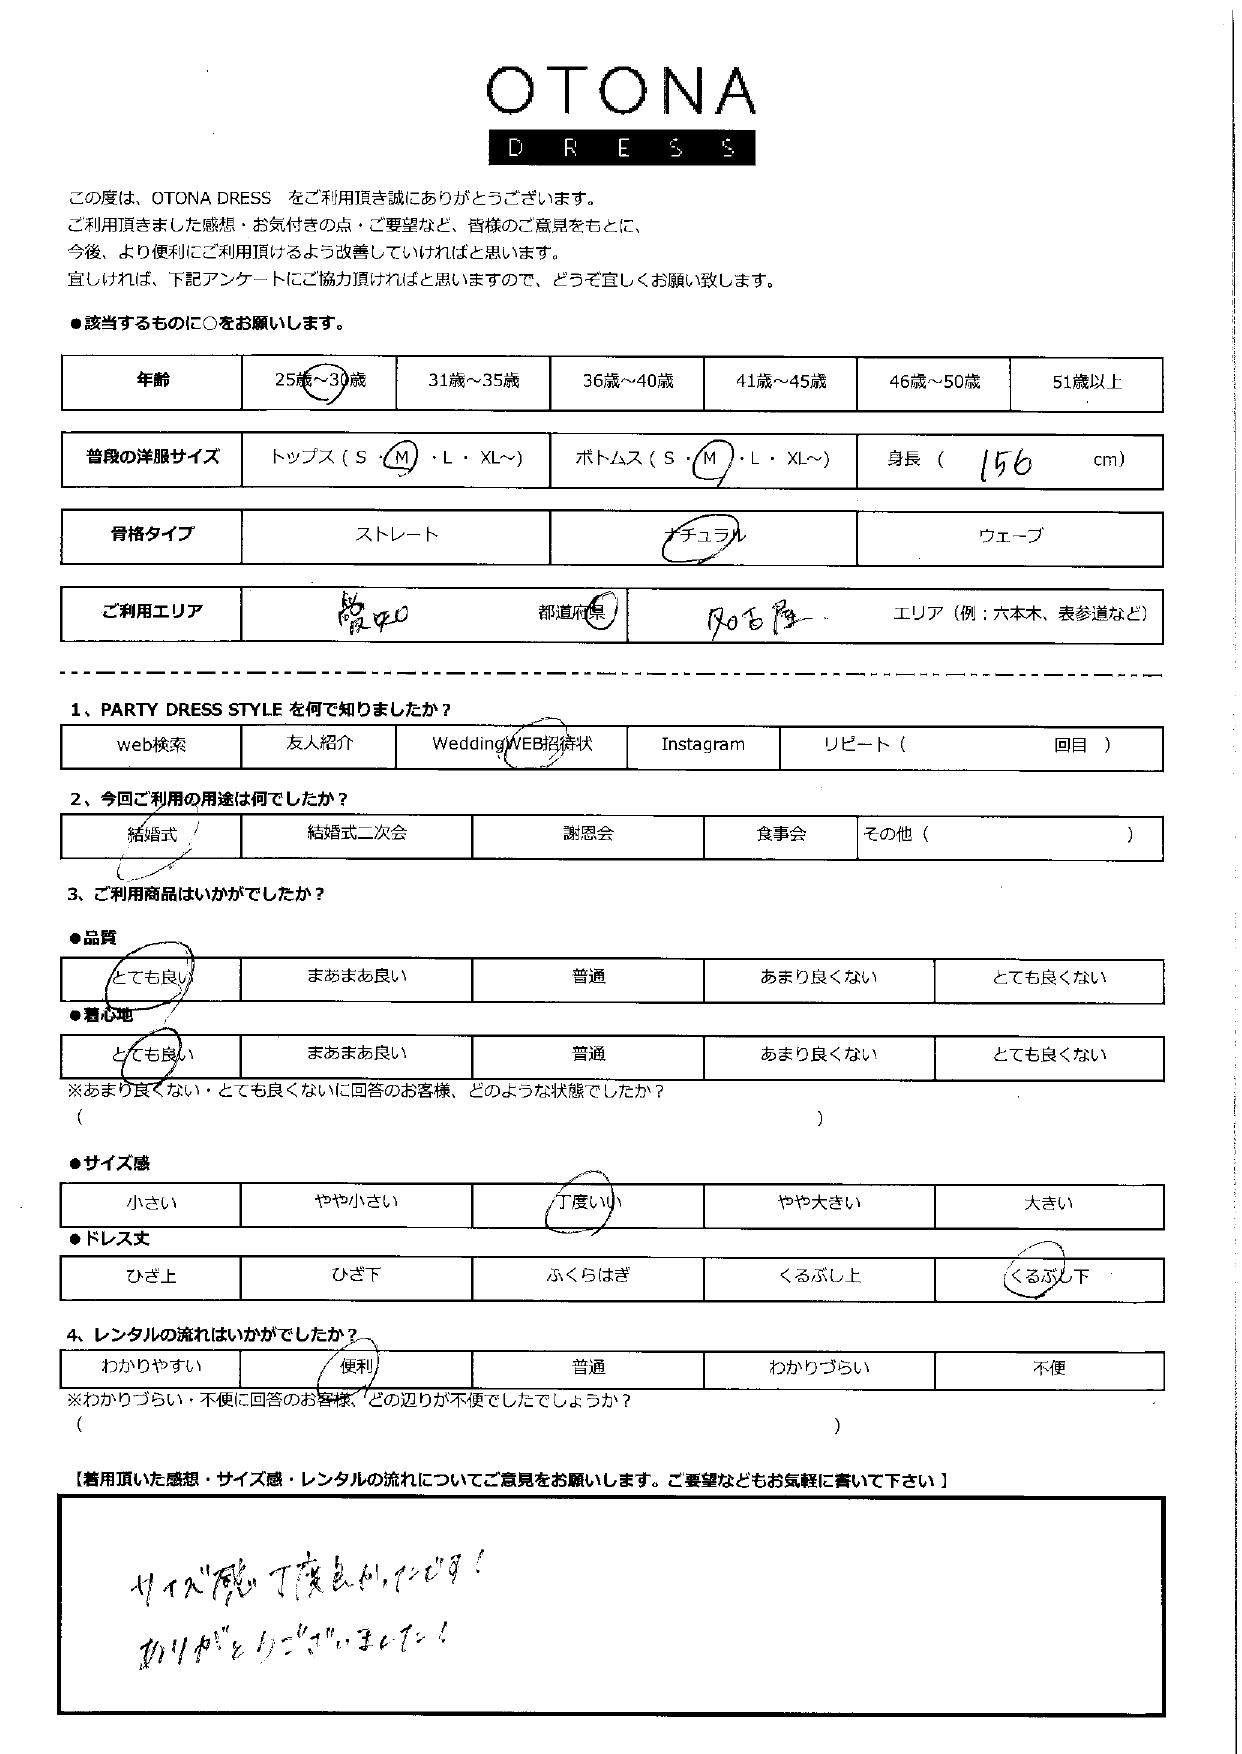 OTONA
DRESS
この度は、OTONA DRESS をご利用頂き誠にありがとうございます。
ご利用頂きました感想・お気付きの点・ご要望など、皆様のご意見をもとに、
今後、より便利にご利用頂けるよう改善していければと思います。
宜しければ、下記アンケートにご協力頂ければと思いますので、どうぞ宜しくお願い致します。
●該当するものに○をお願いします。
年齢 25歳～30歳 31歳～35歳 36歳～40歳 41歳～45歳 46歳～50歳 51歳以上
普段の洋服サイズ トップス ( S ・ M ・L ・ XL～) ボトムス ( S ・ M ・L ・ XL～) 身長 ( 156 cm)
骨格タイプ ストレート ナチュラル ウェーブ
ご利用エリア 愛知 都道府県 名古屋 エリア（例；六本木、表参道など）
1、PARTY DRESS STYLE を何で知りましたか？
web検索 友人紹介 WeddingWEB招待状 Instagram リピート（ 回目 ）
2、今回ご利用の用途は何でしたか？
結婚式 結婚式二次会 謝恩会 食事会 その他（ ）
3、ご利用商品はいかがでしたか？
●品質
とても良い まあまあ良い 普通 あまり良くない とても良くない
●着心地
とても良い まあまあ良い 普通 あまり良くない とても良くない
※あまり良くない・とても良くないに回答のお客様、どのような状態でしたか？
（ ）
●サイズ感
小さい やや小さい 丁度いい やや大きい 大きい
●ドレス丈
ひざ上 ひざ下 ふくらはぎ くるぶし上 くるぶし下
4、レンタルの流れはいかがでしたか？
わかりやすい 便利 普通 わかりづらい 不便
※わかりづらい・不便に回答のお客様、どの辺りが不便でしたでしょうか？
（ ）
【着用頂いた感想・サイズ感・レンタルの流れについてご意見をお願いします。ご要望などもお気軽に書いて下さい 】
サイズ感 丁度良かったです！
ありがとうございました！